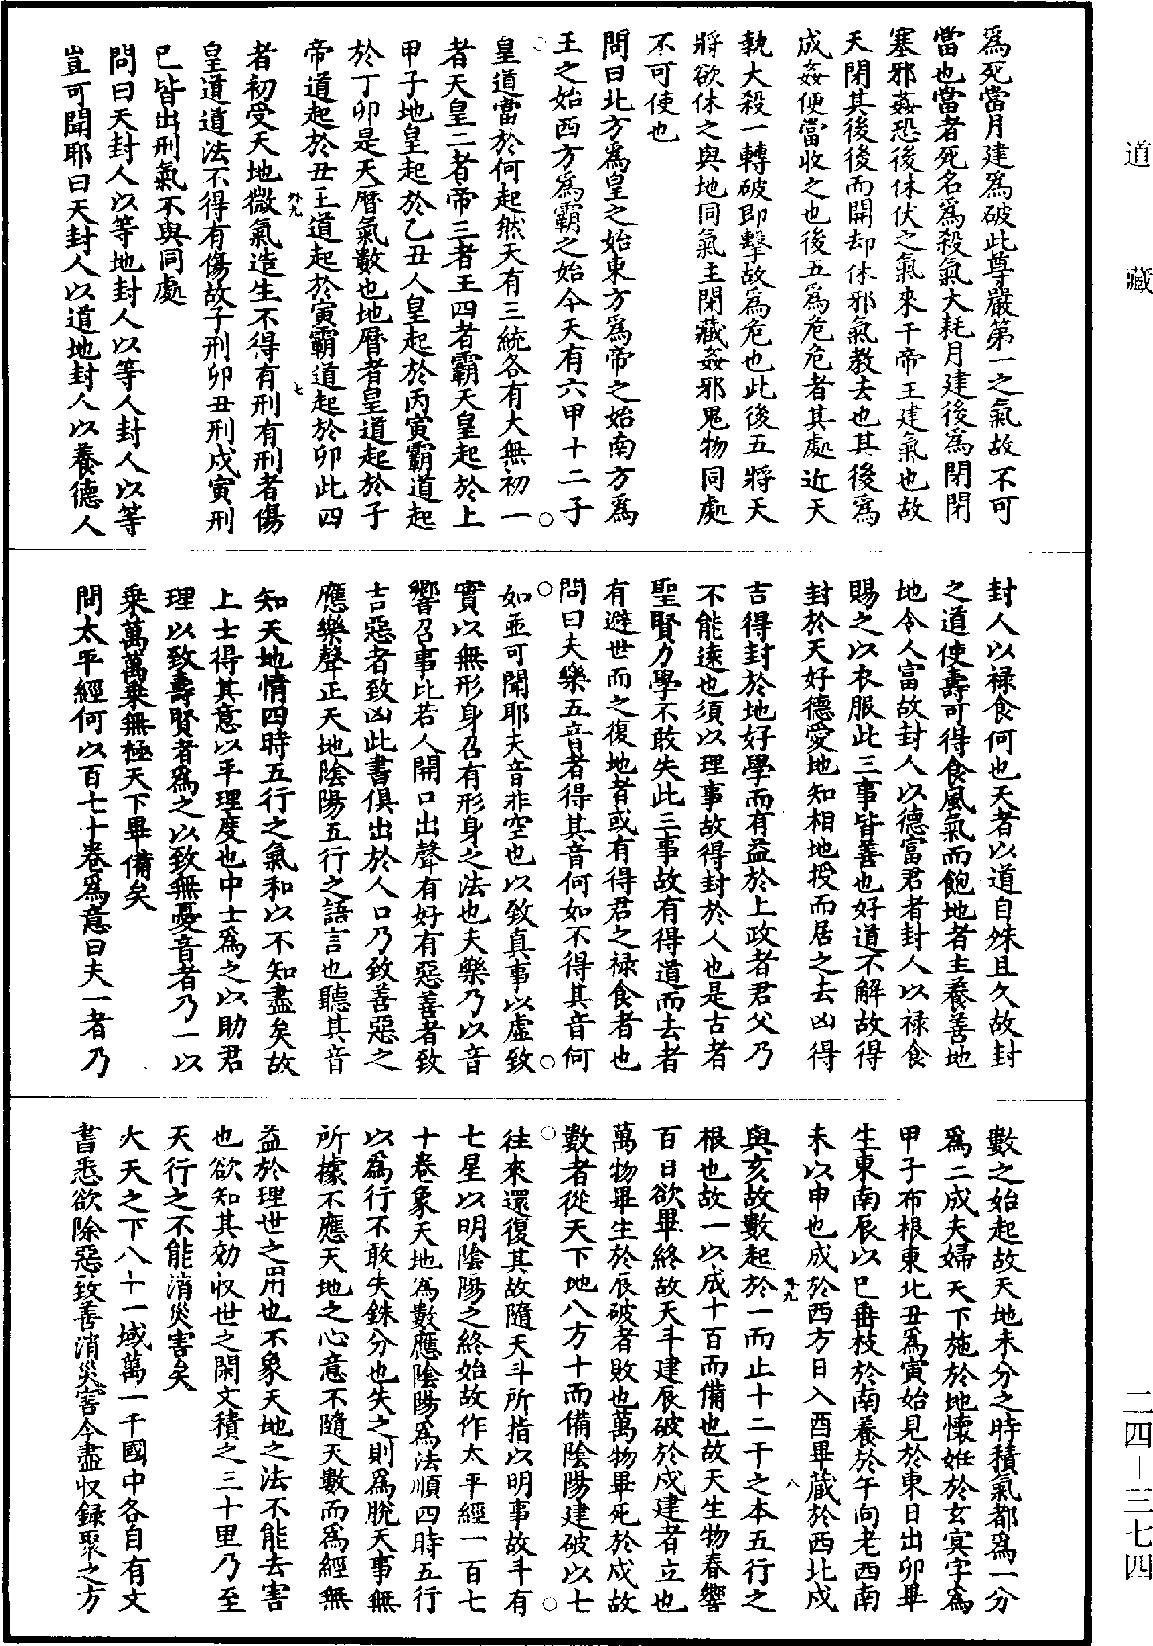 道藏
二四—三七四
爲死當月建爲破此尊嚴第一之氣故不可
當也當者死名爲殺氣大耗月建後爲閉閉
塞邪姦恐後休伏之氣來干帝王建氣也故
天閉其後後而開却休邪氣教去也其後爲
成姦便當收之也後五爲危危者其處近天
執大殺一轉破即擊故爲危也此後五將天
將欲休之與地同氣主閉藏姦邪鬼物同處
不可使也
問曰北方爲皇之始東方爲帝之始南方爲
王之始西方爲霸之始今天有六甲十二子
皇道當於何起然天有三統各有大無初一
者天皇二者帝三者王四者霸天皇起於上
甲子地皇起於乙丑人皇起於丙寅霸道起
於丁卯是天曆氣數也地曆者皇道起於子
帝道起於丑王道起於寅霸道起於卯此四
者初受天地微氣造生不得有刑有刑者傷
皇道道法不得有傷故子刑卯丑刑戌寅刑
巳皆出刑氣不與同處
問曰天封人以等地封人以等人封人以等
豈可聞耶曰天封人以道地封人以養德人
封人以祿食何也天者以道自殊且久故封
之道使壽可得食風氣而飽地者主養善地
地令人富故封人以德富君者封人以祿食
賜之以衣服此三事皆善也好道不解故得
封於天好德愛地知相地授而居之去凶得
吉得封於地好學而有益於上政者君父乃
不能遠也須以理事故得封於人也是古者
聖賢力學不敢失此三事故有得道而去者
有避世而之復地者或有得君之祿食者也
問曰夫樂五音者得其音何如不得其音何
如並可聞耶夫音非空也以致真事以虛致
實以無形身召有形身之法也夫樂乃以音
響召事比若人開口出聲有好有惡善者致
吉惡者致凶此書俱出於人口乃致善惡之
應樂聲正天地陰陽五行之語言也聽其音
知天地情四時五行之氣和以不知盡矣故
上士得其意以平理度也中士爲之以助君
理以致壽賢者爲之以致無憂音者乃一以
乘萬萬乘無極天下畢備矣
問太平經何以百七十卷爲意曰夫一者乃
數之始起故天地未分之時積氣都爲一分
爲二成夫婦天下施於地懷姙於玄冥字爲
甲子布根東北丑爲寅始見於東日出卯畢
生東南辰以巳垂枝於南養於午向老西南
未以申也成於西方日入酉畢藏於西北戌
與亥故數起於一而止十二干之本五行之
根也故一以成十百而備也故天生物春響
百日欲畢終故天斗建辰破於戌建者立也
萬物畢生於辰破者敗也萬物畢死於戌故
數者從天下地八方十而備陰陽建破以七
往來還復其故隨天斗所指以明事故斗有
七星以明陰陽之終始故作太平經一百七
十卷象天地爲數應陰陽爲法順四時五行
以爲行不敢失銖分也失之則爲脫天事無
所據不應天地之心意不隨天數而爲經無
益於理世之用也不象天地之法不能去害
也欲知其効收世之閑文積之三十里乃至
天行之不能消災害矣
大天之下八十一域萬一千國中各自有文
書悉欲除惡致善消災害今盡收録聚之方
外九
七
外九
八